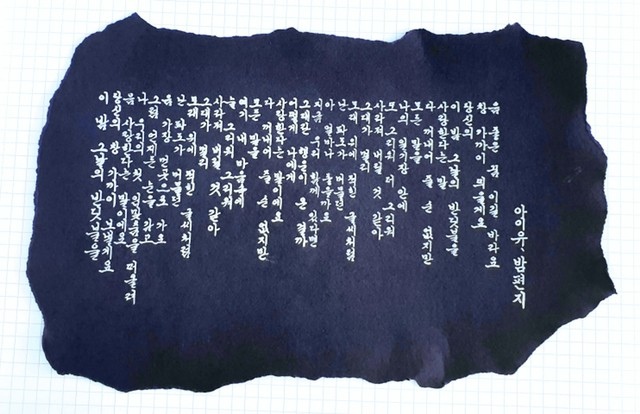 이 밤 그날의 반딧불을
당신의 창 가까이 보낼게요
음 사랑한다는 말이에요
나 우리의 첫 입맞춤을 떠올려
그럼 언제든 눈을 감고
음 가장 먼 곳으로 가요
난 파도가 머물던
모래 위에 적힌 글씨처럼
그대가 멀리
사라져 버릴 것 같아
늘 그리워 그리워
여기 내 마음속에
모든 말을
다 꺼내어 줄 순 없지만
사랑한다는 말이에요
어떻게 나에게
그대란 행운이 온 걸까
지금 우리 함께 있다면
아 얼마나 좋을까요
난 파도가 머물던
모래 위에 적힌 글씨처럼
그대가 멀리
사라져 버릴 것 같아
또 그리워 더 그리워
나의 일기장 안에
모든 말을
다 꺼내어 줄 순 없지만
사랑한다는 말
이 밤 그날의 반딧불을
당신의
창 가까이 띄울게요
음 좋은 꿈 이길 바라요
아이유 밤편지